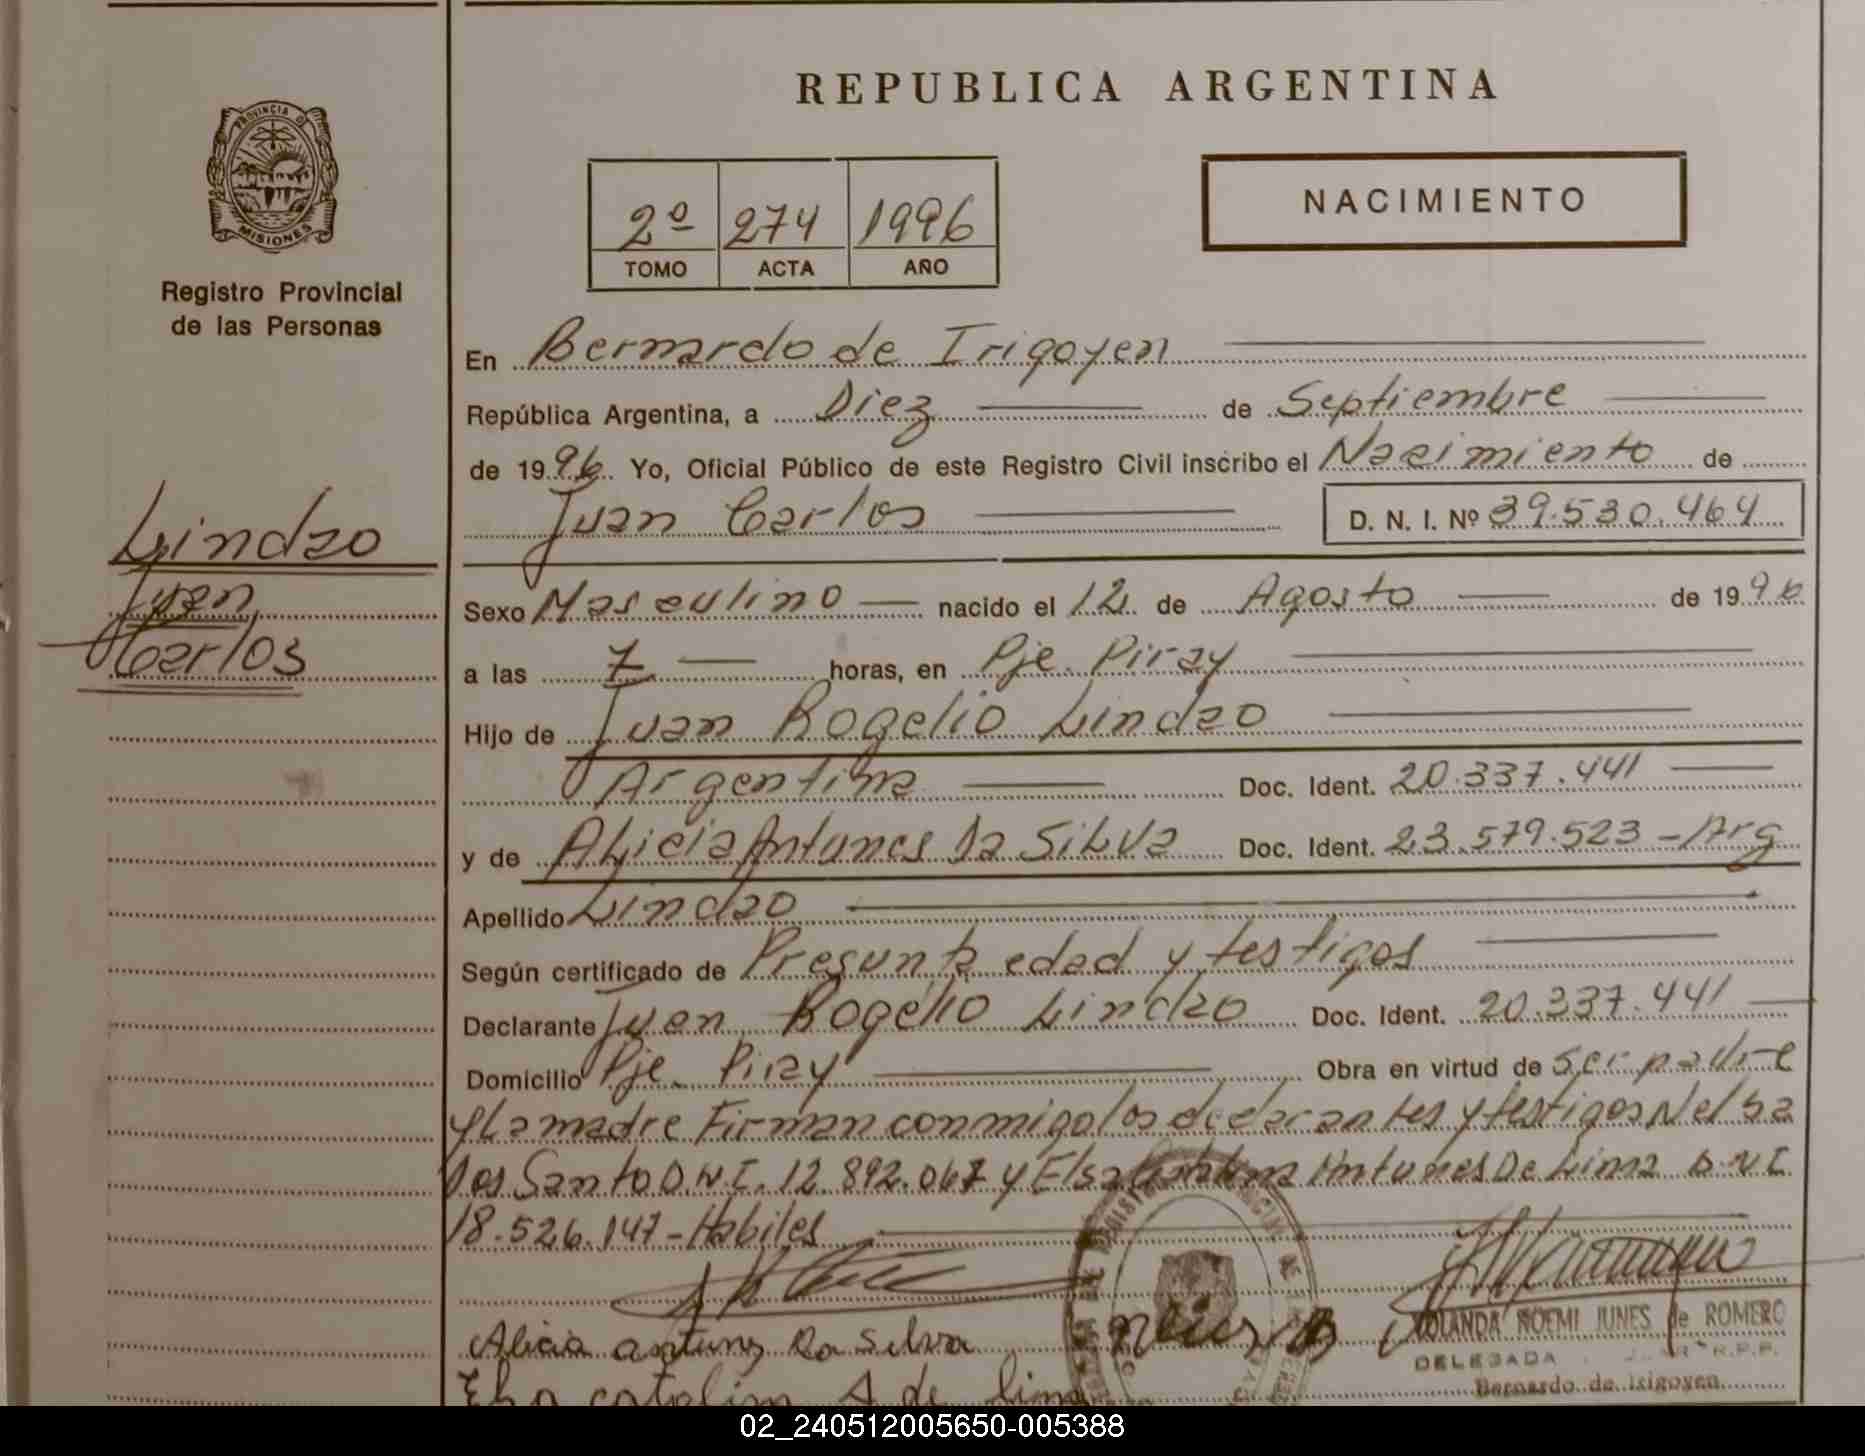 REPUBLICA ARGENTINA
PROVINCIA D
MISIONES
Registro Provincial
de las Personas
2º 274 1996
TOMO ACTA AÑO
NACIMIENTO
En Bernardo de Irigoyen
República Argentina, a Diez de Septiembre
de 1996 Yo, Oficial Público de este Registro Civil inscribo el Nacimiento de
Juan Carlos D. N. I. Nº 39.530.464
Lindao
Juan
Carlos
Sexo Masculino nacido el 12 de Agosto de 1996
a las 7 horas, en Pje. Piray
Hijo de Juan Rogelio Lindao
Argentina Doc. Ident. 20.337.441
y de Alicia Antunes Da Silva Doc. Ident. 23.579.523 - Arg
Apellido Lindao
Según certificado de Presunta edad y testigos
Declarante Juan Rogelio Lindao Doc. Ident. 20.337.441
Domicilio Pje. Piray Obra en virtud de ser padre
y La madre Firman conmigo los declarantes y testigos Nelsa
Dos Santo D.N.I. 12.892.067 y Elsa Antunes De Lima D.N.I.
18.526.147 - Habiles
Alicia antunes Da Silva
YOLANDA NOEMI JUNES de ROMERO
DELEGADA R.P.P.
Bernardo de Irigoyen
Elsa catalin A de lima
02_240512005650-005388